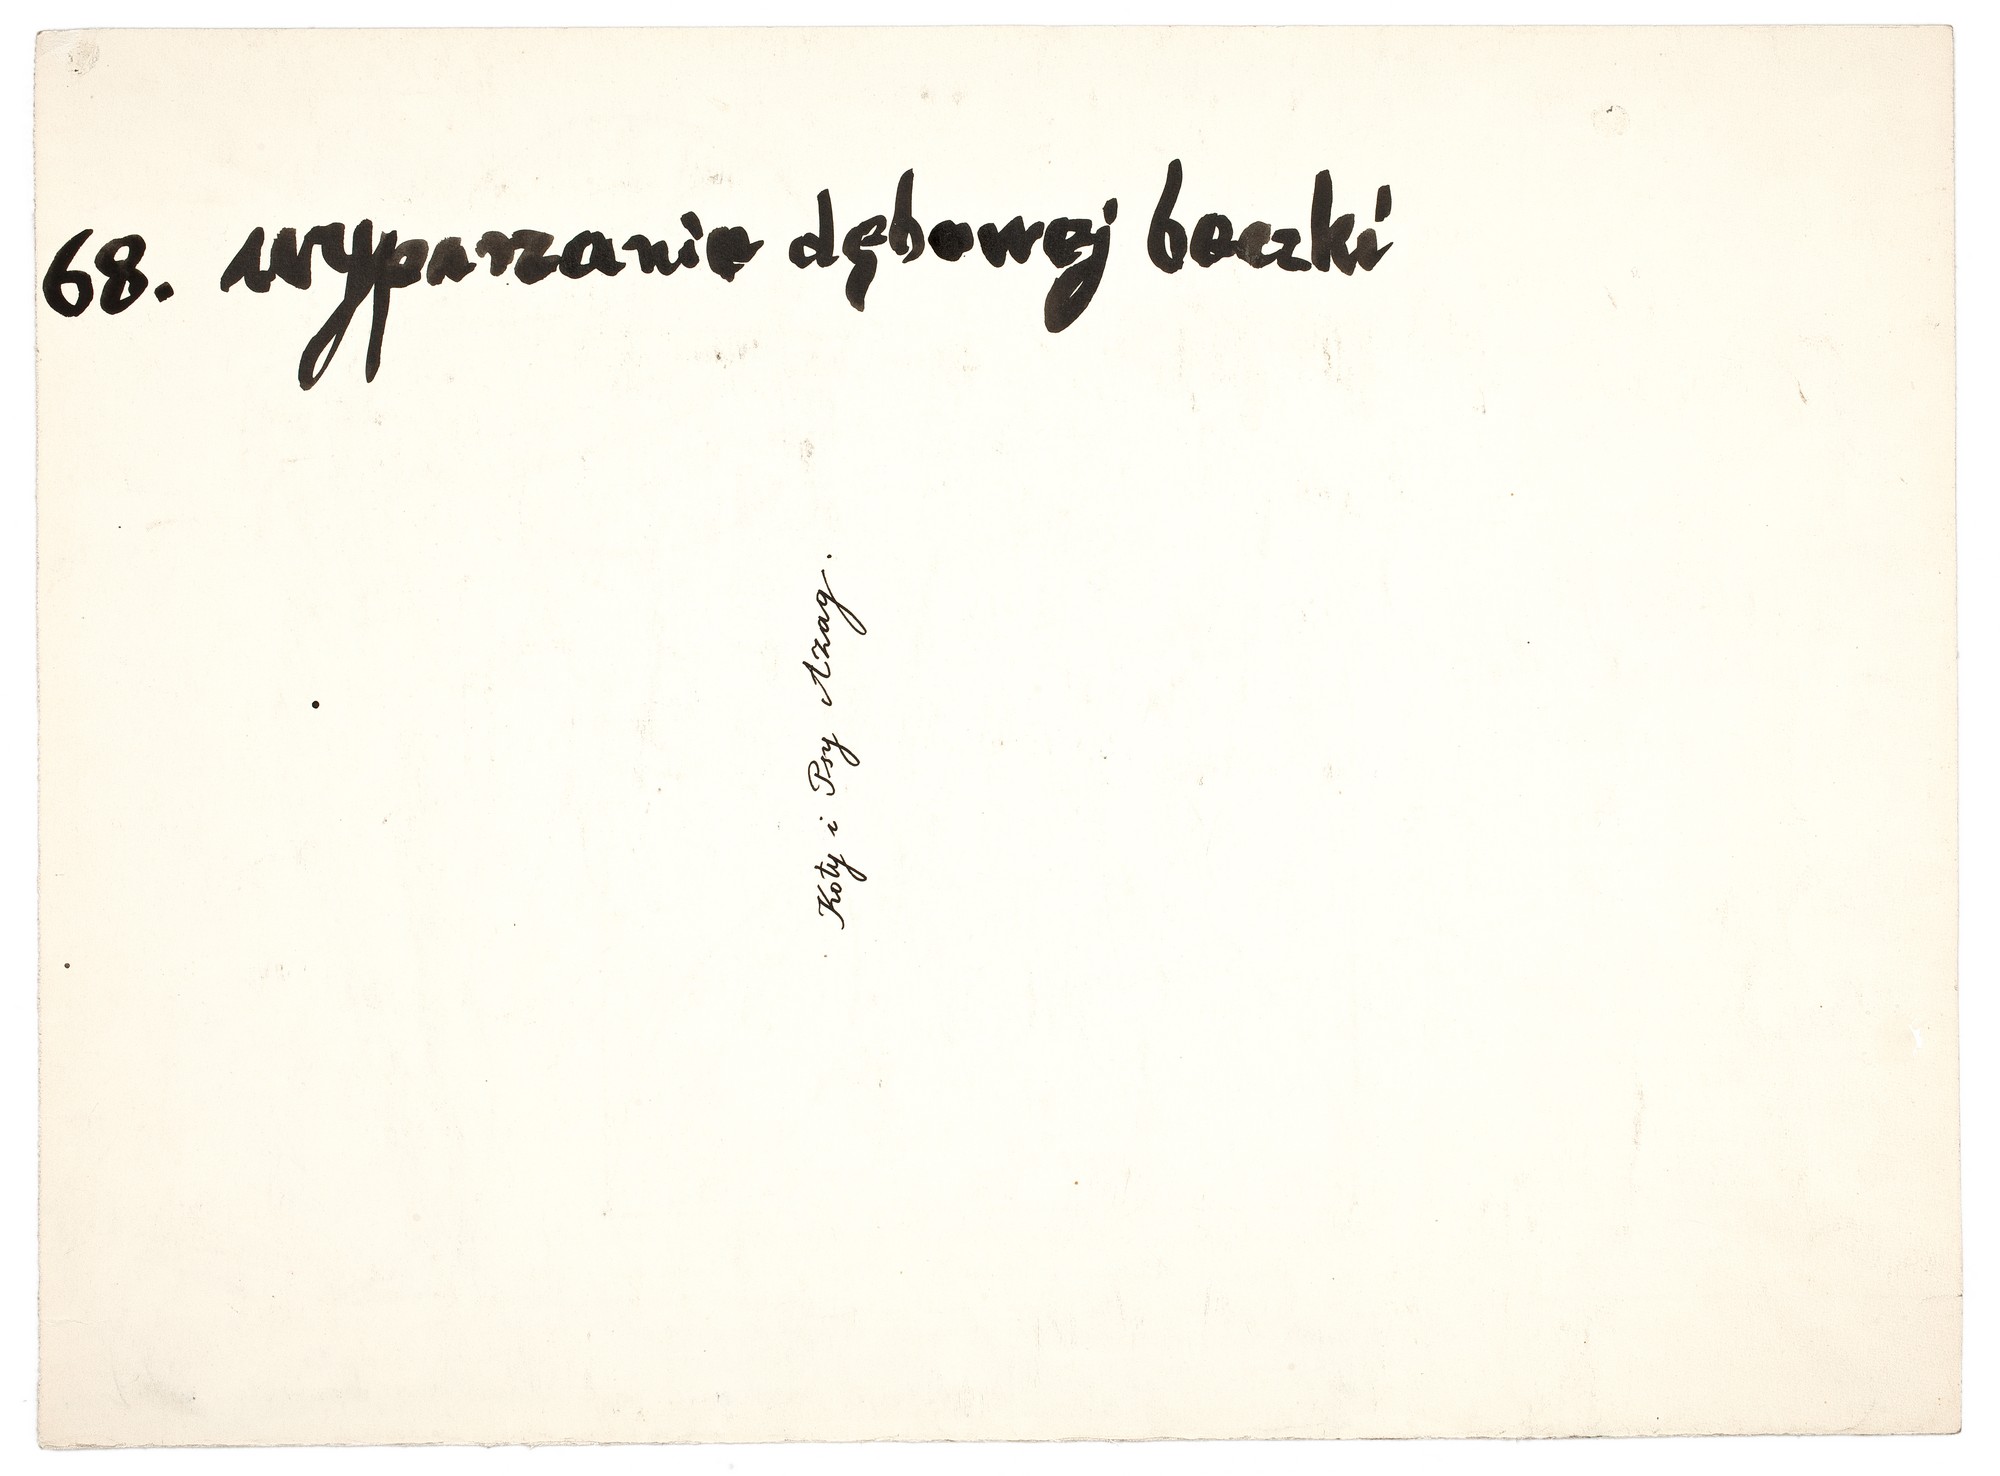 68. wyparzanie dębowej beczki
Koty i Psy Azag.